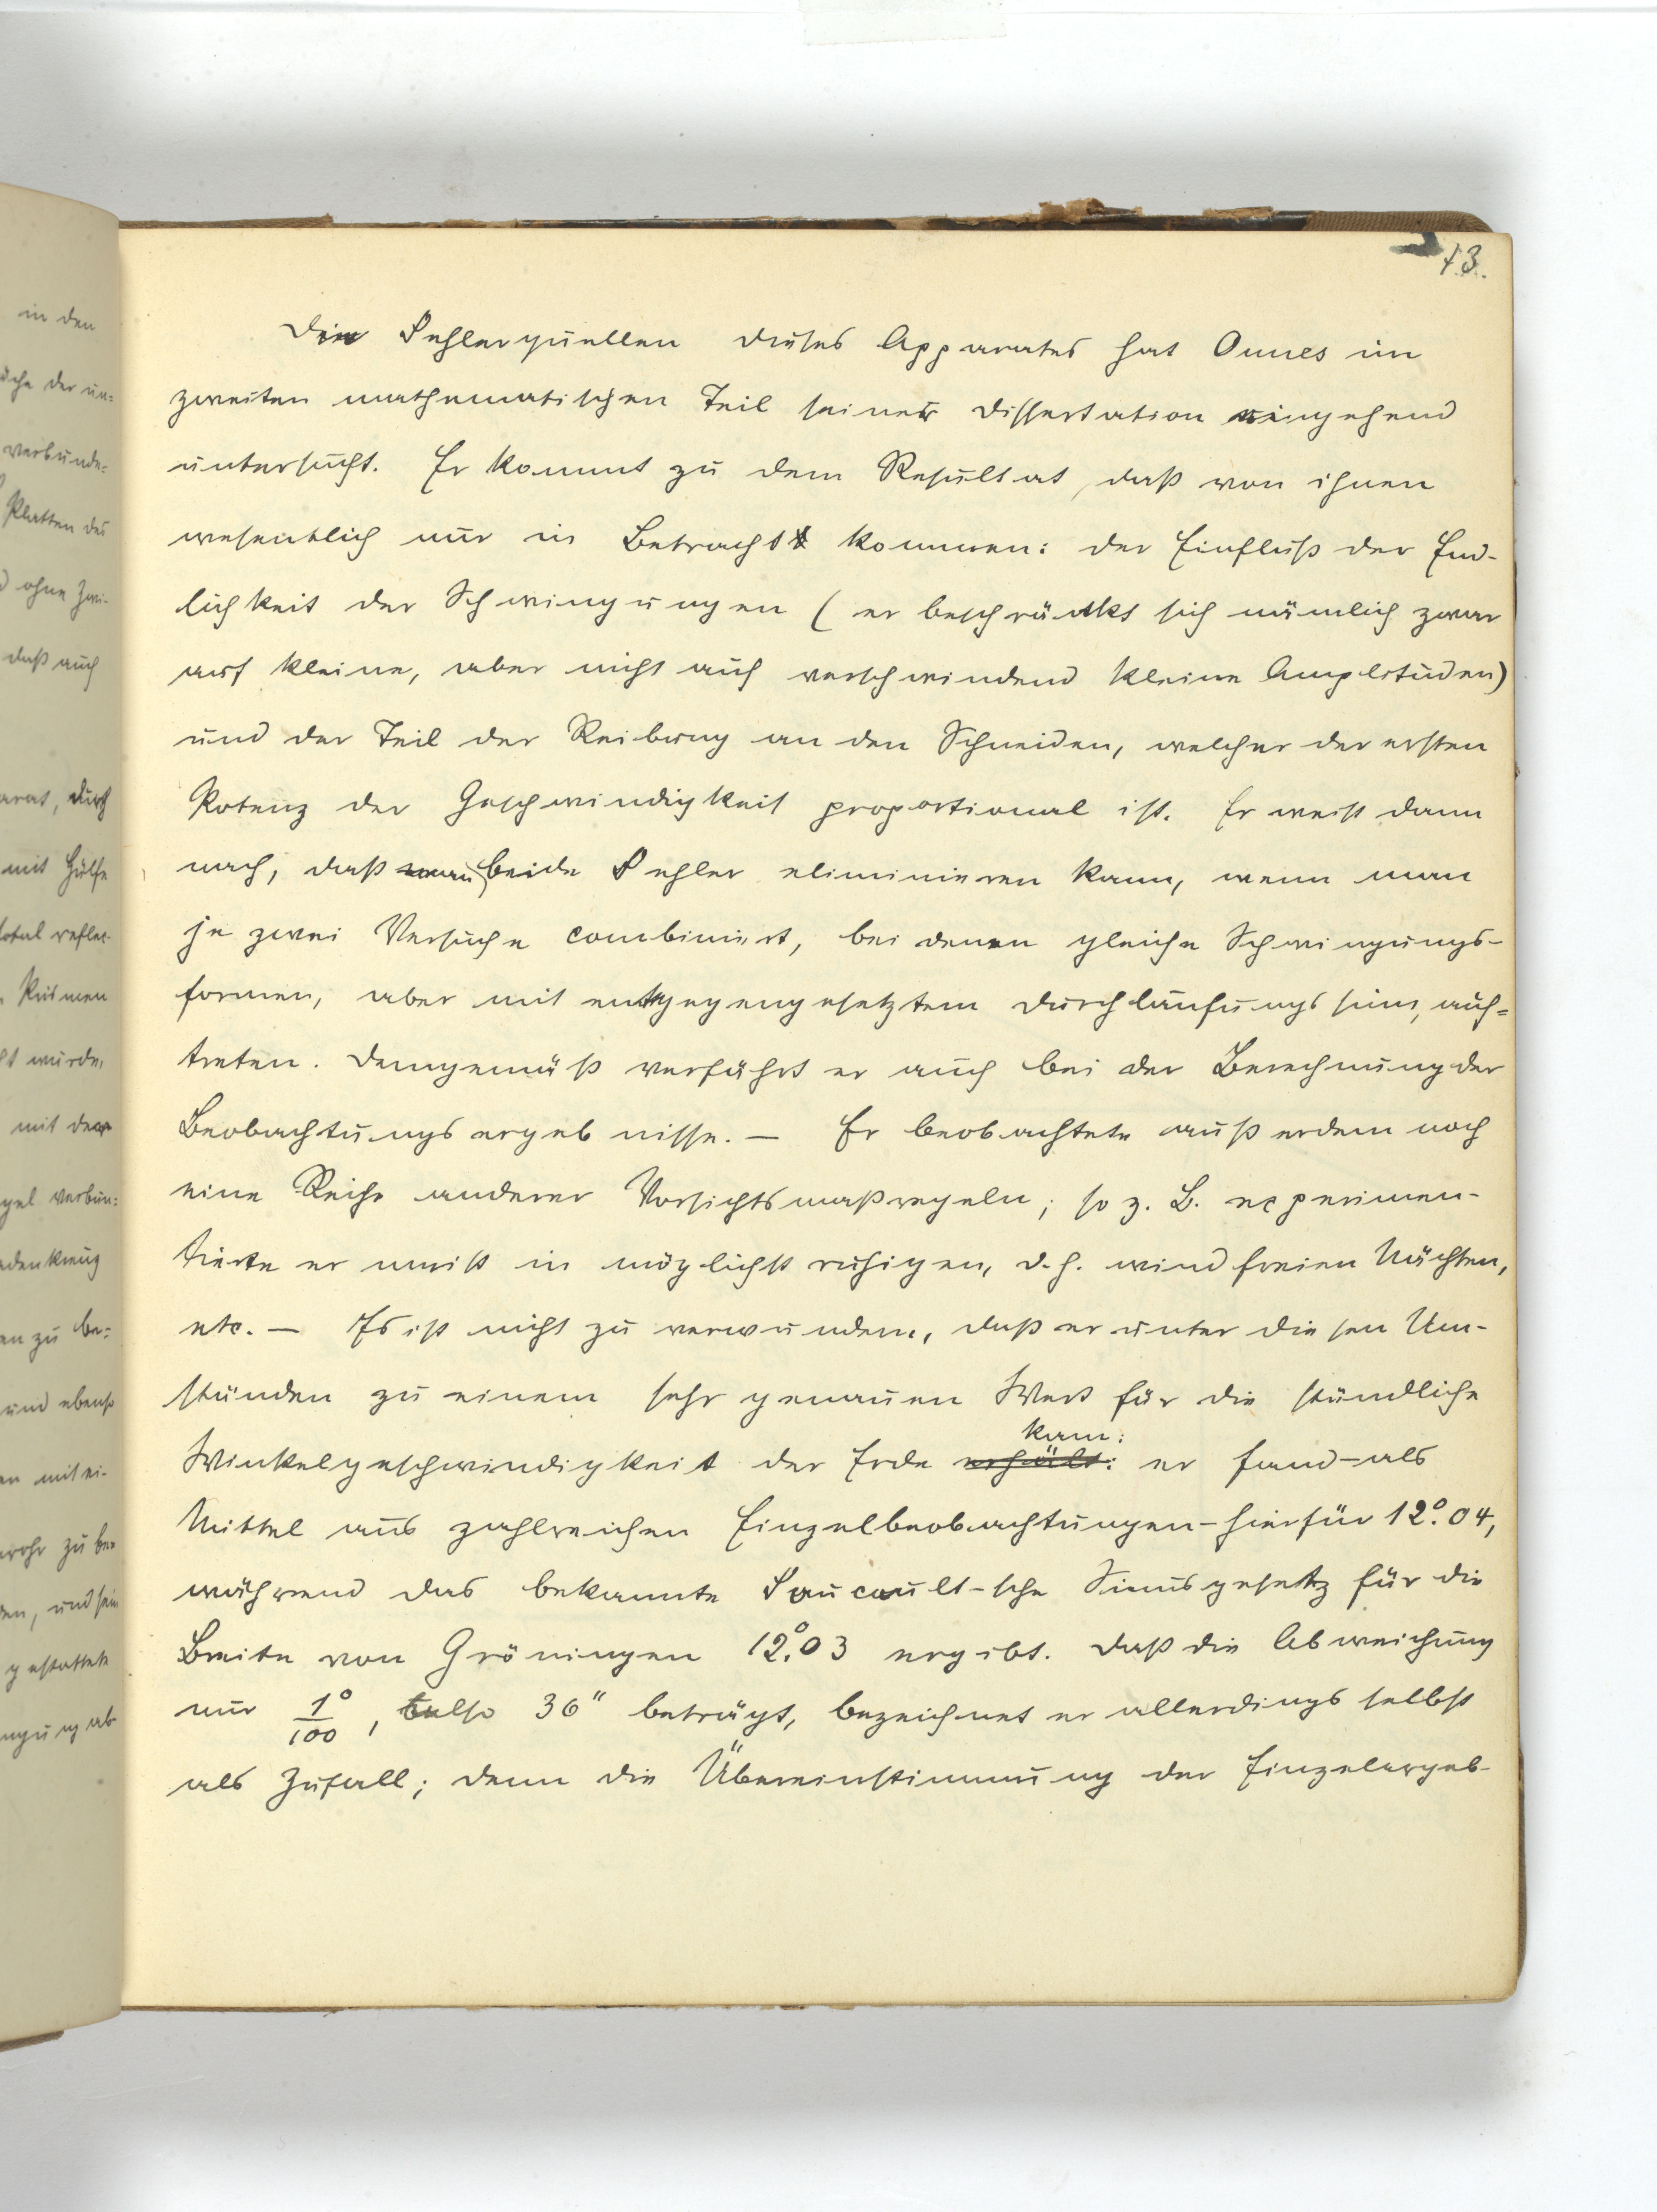 13.
Die Fehlerquellen dieses Apparates hat Onnes im
zweiten mathematischen Teil seiner Dissertation eingehend
untersucht. Er kommt zu dem Resultat, daß von ihnen
wesentlich nur in Betracht kommen: der Einfluß der End-
lichkeit der Schwingungen (er beschränkt sich nämlich zwar
auf kleine, aber nicht auf verschwindend kleine Amplituden)
und der Teil der Reibung an den Schneiden, welcher der ersten
Potenz der Geschwindigkeit proportional ist. Er weist dann
nach, daß man beide Fehler eliminieren kann, wenn man
je zwei Versuche combiniert, bei denen gleiche Schwingungs-
formen, aber mit entgegengesetztem Durchlaufungssinn, auf=
treten. Demgemäß verfährt er auch bei der Berechnung der
Beobachtungsergebnisse. — Er beobachtete außerdem noch
eine Reihe anderer Vorsichtsmaßregeln; so z. B. experimen-
tierte er meist in möglichst ruhigen, d. h. windfreien Nächten,
etc. — Es ist nicht zu verwundern, daß er unter diesen Um-
ständen zu einem sehr genauen Wert für die stündliche
kam:
Winkelgeschwindigkeit der Erde erhält: er fand – als
Mittel aus zahlreichen Einzelbeobachtungen – hierfür 12°.04,
während das bekannte Foucault-sche Sinusgesetz für die
Breite von Gröningen 12°.03 ergibt. Daß die Abweichung
nur 1°/100, also 36" beträgt, bezeichnet er allerdings selbst
als Zufall; denn die Übereinstimmung der Einzelergeb-
in den
verbunde=
Platten des
ohne Zwi-
daß auch
durch
mit Hülfe
total reflec-
wurde,
mit der
verbun=
zu be=
und ebenso
mit ei-
zu be=
und sein
gestattete